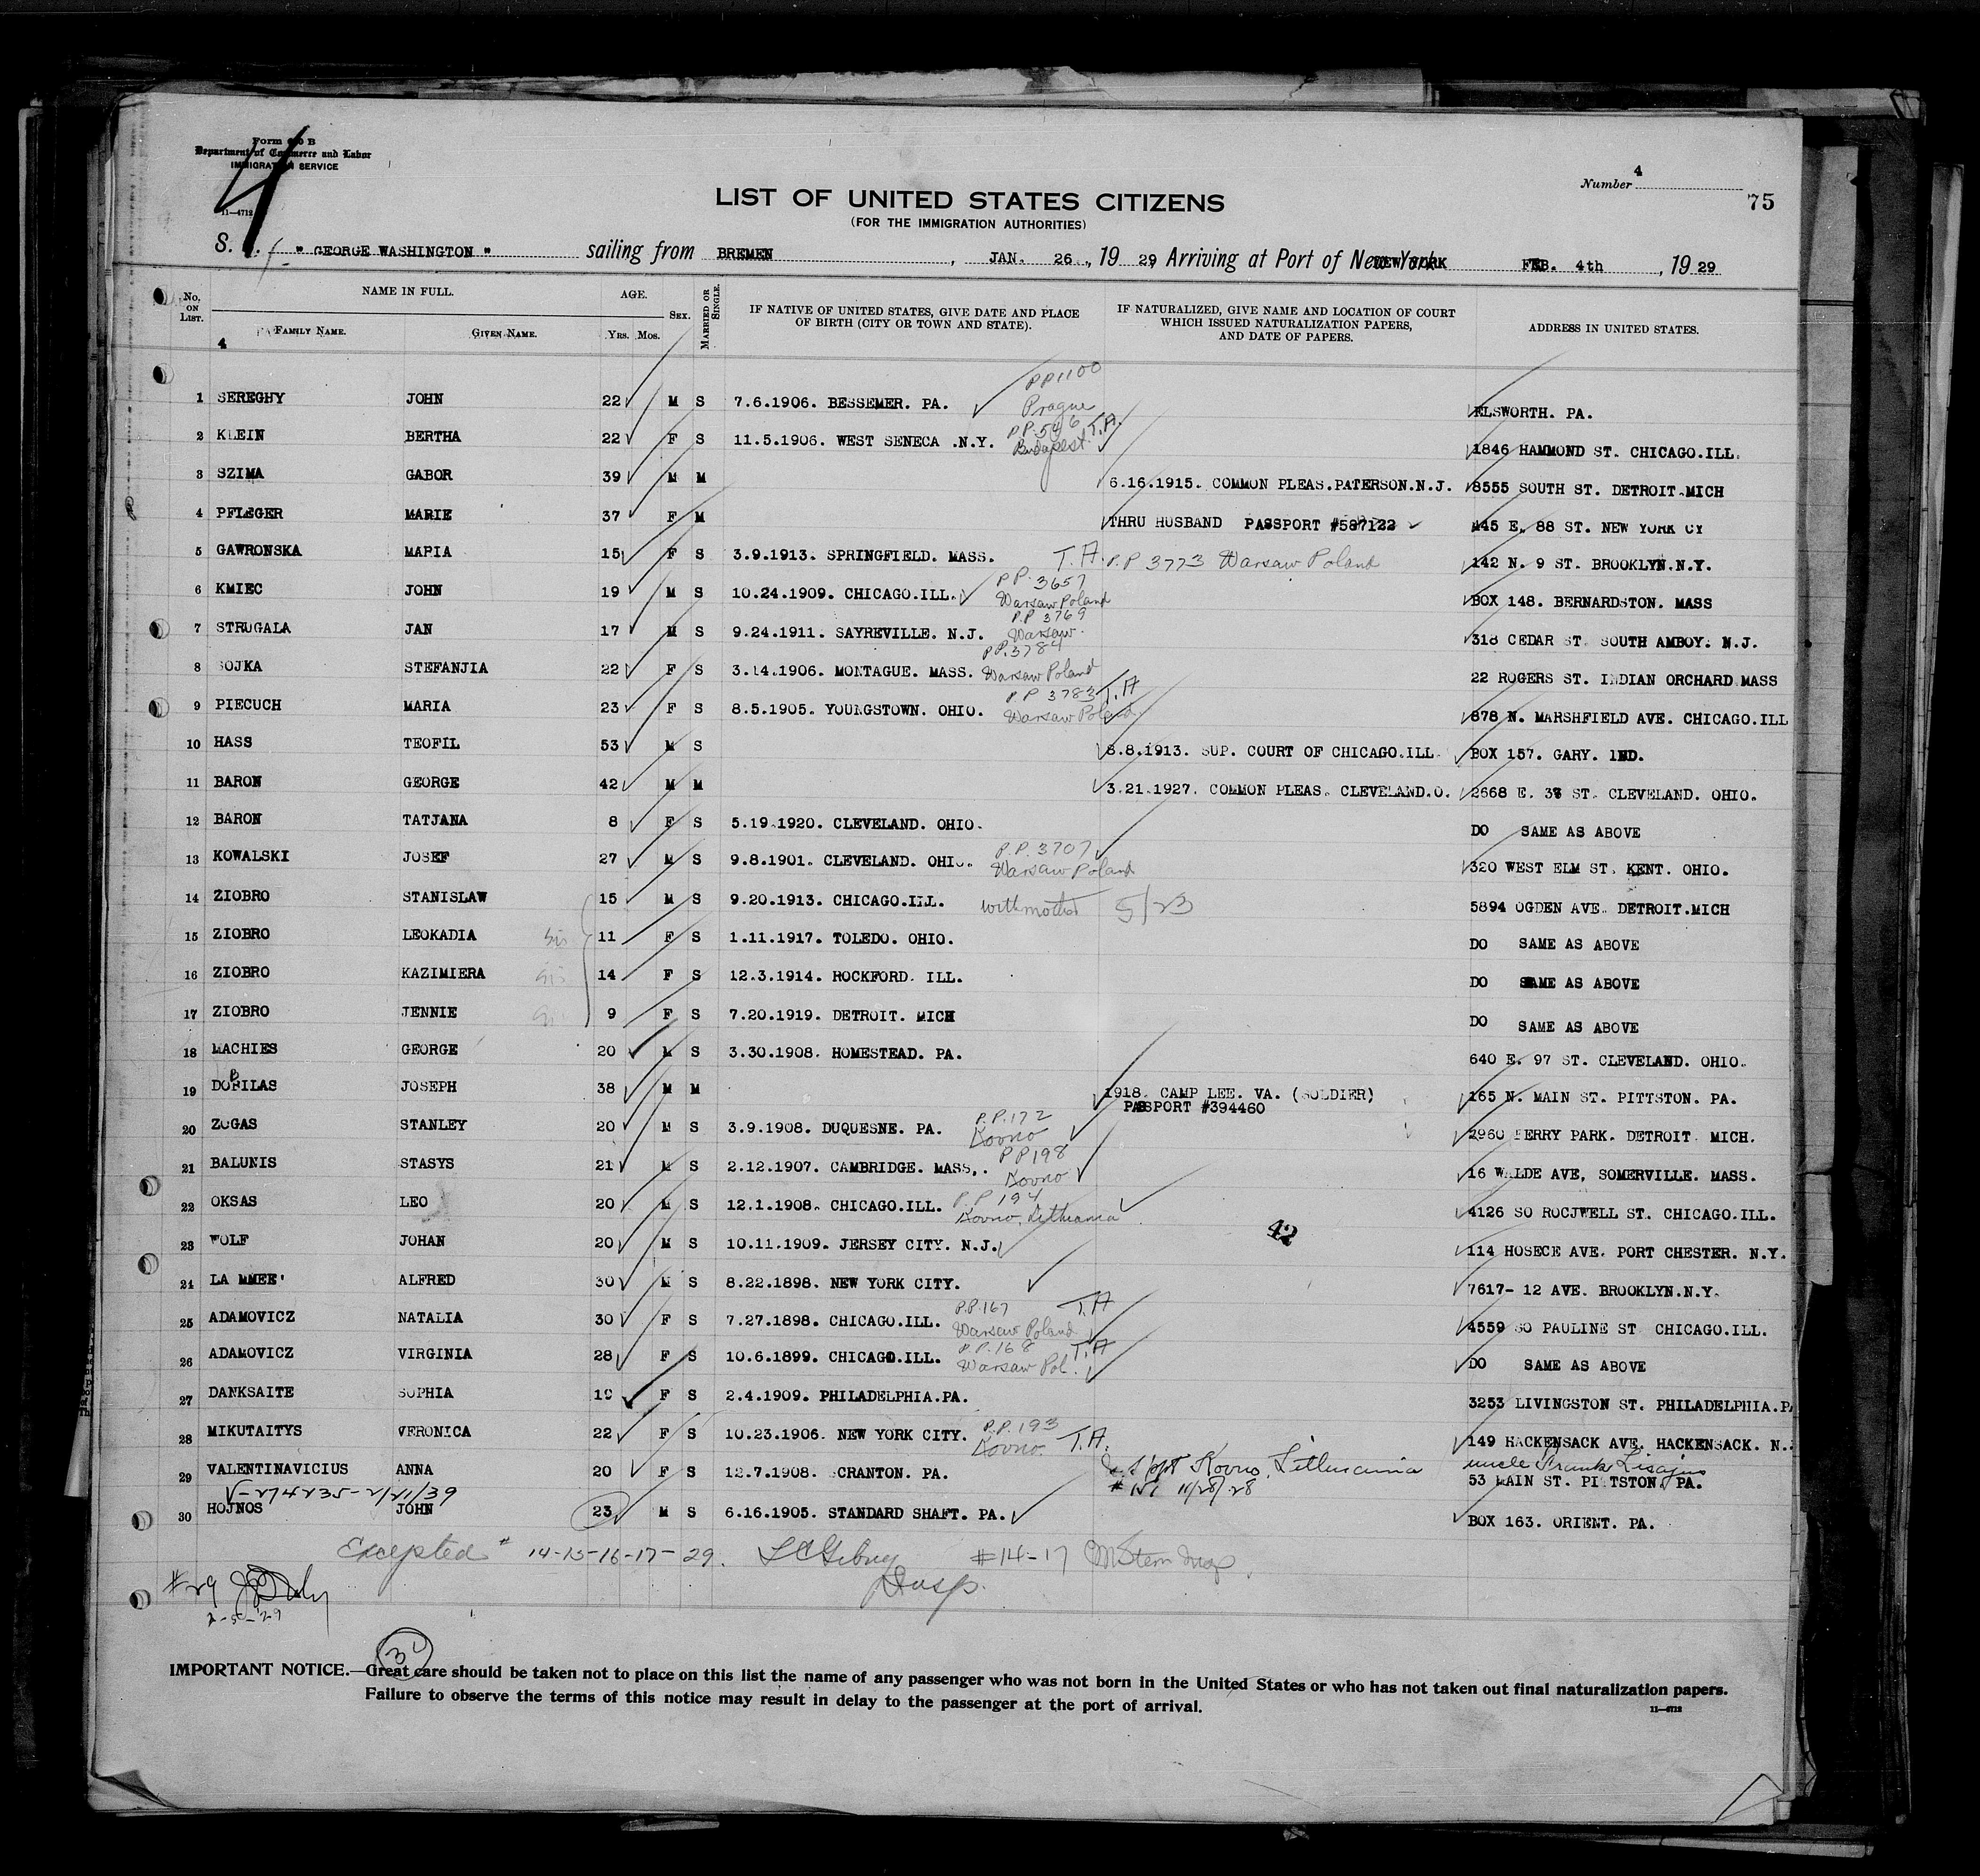 Form 630 B
Department of Commerce and Labor
IMMIGRATION SERVICE
11—4712
4
Number 4
75
LIST OF UNITED STATES CITIZENS
(FOR THE IMMIGRATION AUTHORITIES)
S. " GEORGE WASHINGTON " sailing from BREMEN, JAN. 26, 19 29, Arriving at Port of New York NEW YORK FEB. 4th, 19 29
No. ON LIST. NAME IN FULL. FAMILY NAME. GIVEN NAME. AGE. Yrs. Mos. SEX. MARRIED OR SINGLE. IF NATIVE OF UNITED STATES, GIVE DATE AND PLACE OF BIRTH (CITY OR TOWN AND STATE). IF NATURALIZED, GIVE NAME AND LOCATION OF COURT WHICH ISSUED NATURALIZATION PAPERS, AND DATE OF PAPERS. ADDRESS IN UNITED STATES.
4
1 SEREGHY JOHN 22 M S 7.6.1906. BESSEMER. PA. PP1100 Prague ELSWORTH. PA.
2 KLEIN BERTHA 22 F S 11.5.1906. WEST SENECA .N.Y. P.P. 546 Budapest T.A. 1846 HAMMOND ST. CHICAGO.ILL.
3 SZIMA GABOR 39 M M 6.16.1915. COMMON PLEAS.PATERSON.N.J. 8555 SOUTH ST. DETROIT.MICH
4 PFLEGER MARIE 37 F M THRU HUSBAND PASSPORT #587122 445 E. 88 ST. NEW YORK CY
5 GAWRONSKA MARIA 15 F S 3.9.1913. SPRINGFIELD. MASS. T.A. P.P 3773 Warsaw Poland 142 N. 9 ST. BROOKLYN.N.Y.
6 KMIEC JOHN 19 M S 10.24.1909. CHICAGO.ILL. PP. 3657 Warsaw Poland BOX 148. BERNARDSTON. MASS
7 STRUGALA JAN 17 M S 9.24.1911. SAYREVILLE. N.J. P.P 3769 Warsaw. 318 CEDAR ST. SOUTH AMBOY. N.J.
8 SOJKA STEFANJIA 22 F S 3.14.1906. MONTAGUE. MASS. PP.3784 Warsaw Poland 22 ROGERS ST. INDIAN ORCHARD MASS
9 PIECUCH MARIA 23 F S 8.5.1905. YOUNGSTOWN. OHIO. P P 3783 T.A Warsaw Poland 878 N. MARSHFIELD AVE. CHICAGO.ILL
10 HASS TEOFIL 53 M S 8.8.1913. SUP. COURT OF CHICAGO.ILL BOX 157. GARY. IND.
11 BARON GEORGE 42 M M 3.21.1927. COMMON PLEAS. CLEVELAND.O. 2668 E. 37 ST. CLEVELAND. OHIO.
12 BARON TATJANA 8 F S 5.19.1920. CLEVELAND. OHIO. DO SAME AS ABOVE
13 KOWALSKI JOSEF 27 M S 9.8.1901. CLEVELAND. OHIO. P.P. 3707 Warsaw Poland 320 WEST ELM ST. KENT. OHIO.
14 ZIOBRO STANISLAW 15 M S 9.20.1913. CHICAGO.ILL. with mother 5/23 5894 OGDEN AVE. DETROIT.MICH
15 ZIOBRO LEOKADIA sis 11 F S 1.11.1917. TOLEDO. OHIO. DO SAME AS ABOVE
16 ZIOBRO KAZIMIERA sis 14 F S 12.3.1914. ROCKFORD. ILL. DO SAME AS ABOVE
17 ZIOBRO JENNIE 9 F S 7.20.1919. DETROIT. MICH DO SAME AS ABOVE
18 MACHIES GEORGE 20 M S 3.30.1908. HOMESTEAD. PA. 640 E. 97 ST. CLEVELAND. OHIO.
19 DOBILAS JOSEPH 38 M M 1918. CAMP LEE. VA. (SOLDIER) PASSPORT #394460 165 N. MAIN ST. PITTSTON. PA.
20 ZUGAS STANLEY 20 M S 3.9.1908. DUQUESNE. PA. P.P.172 Kovno 2960 FERRY PARK. DETROIT. MICH.
21 BALUNIS STASYS 21 M S 2.12.1907. CAMBRIDGE. MASS.. PP198 Kovno 16 WALDE AVE, SOMERVILLE. MASS.
22 OKSAS LEO 20 M S 12.1.1908. CHICAGO.ILL. P.P 194 Kovno, Lithuania 4126 SO ROCJWELL ST. CHICAGO.ILL.
42
23 WOLF JOHAN 20 M S 10.11.1909. JERSEY CITY. N.J. 114 HOSECE AVE. PORT CHESTER. N.Y.
24 LA MMEE' ALFRED 30 M S 8.22.1898. NEW YORK CITY. 7617- 12 AVE. BROOKLYN.N.Y.
25 ADAMOVICZ NATALIA 30 F S 7.27.1898. CHICAGO.ILL. P.P.167 T.A Warsaw Poland 4559 SO PAULINE ST CHICAGO.ILL.
26 ADAMOVICZ VIRGINIA 28 F S 10.6.1899. CHICAGO.ILL. P.P.168 T.A Warsaw Pol. DO SAME AS ABOVE
27 DANKSAITE SOPHIA 19 F S 2.4.1909. PHILADELPHIA.PA. 3253 LIVINGSTON ST. PHILADELPHIA.PA
28 MIKUTAITYS VERONICA 22 F S 10.23.1906. NEW YORK CITY. P.P.193 Kovno. T.A. 149 HACKENSACK AVE. HACKENSACK. N.J
29 VALENTINAVICIUS ANNA 20 F S 12.7.1908. SCRANTON. PA. U.S ppt Kovno, Lithuania 11/28/28 uncle Frank 53 MAIN ST. PITTSTON. PA.
V-274235-2/21/39
30 HOJNOS JOHN 23 M S 6.16.1905. STANDARD SHAFT. PA. BOX 163. ORIENT. PA.
Excepted # 14-15-16-17-29. #14-17 Stern Insp
#29
2-5-29
Insp.
IMPORTANT NOTICE.—Great care should be taken not to place on this list the name of any passenger who was not born in the United States or who has not taken out final naturalization papers.
Failure to observe the terms of this notice may result in delay to the passenger at the port of arrival.
11—4712